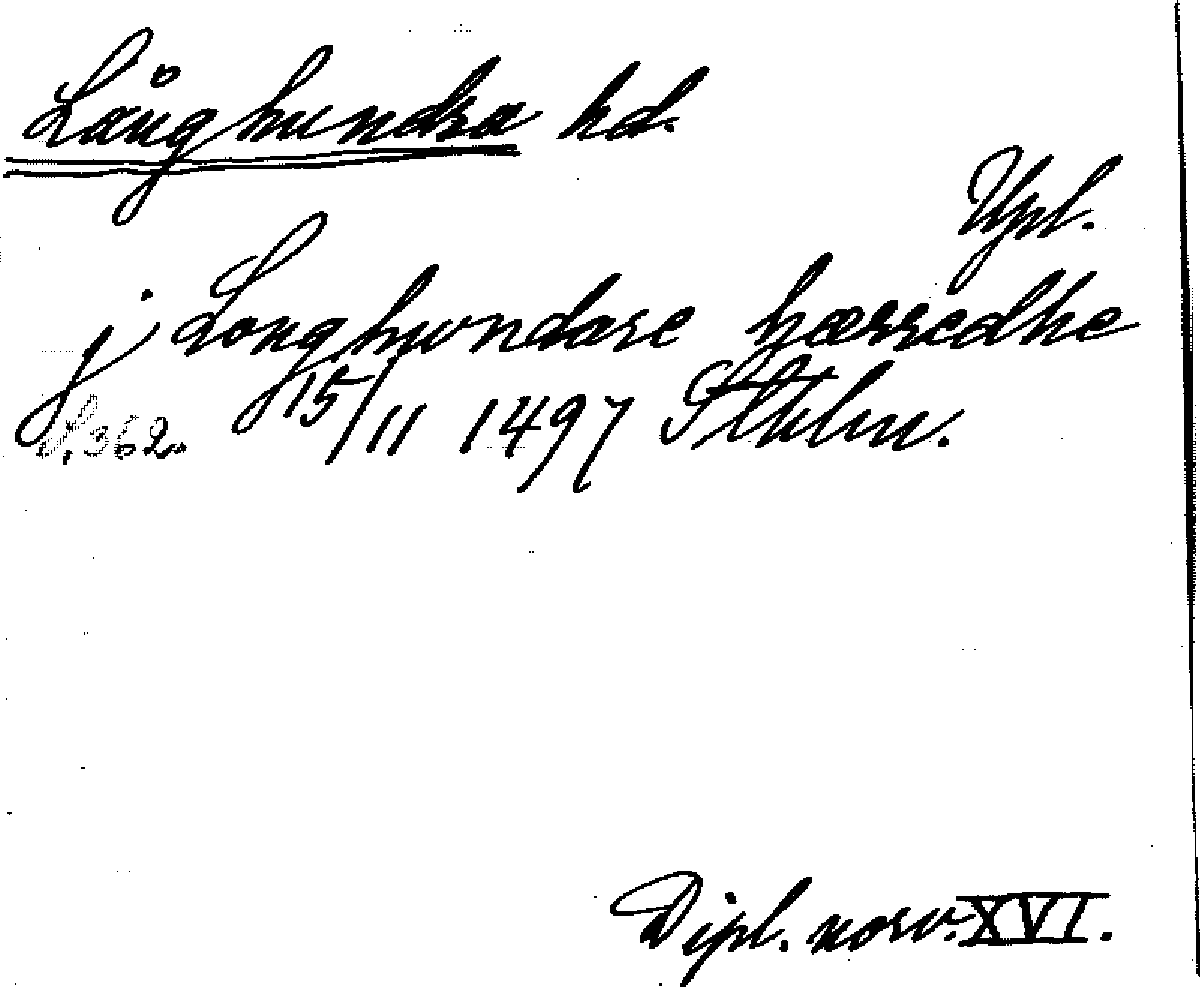 Långhundra hd.
Upl.
j Longhundare hærredhe
s. 362. 15/11 1497 Sthlm.
Dipl. norv. XVI.